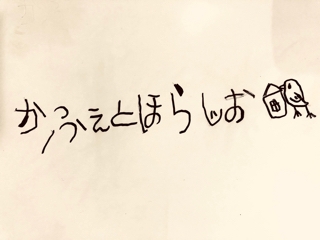 かふぇとほらしお